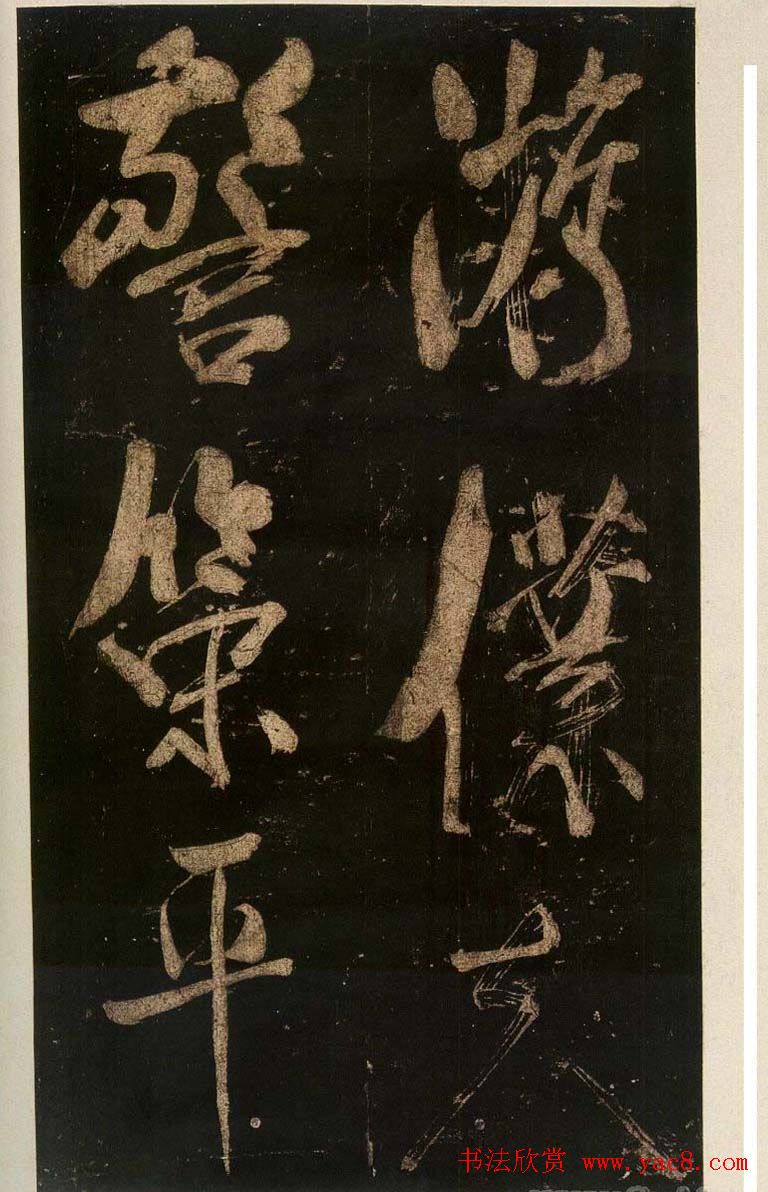 游僕夫
警策平
书法欣赏 www.yac8.com